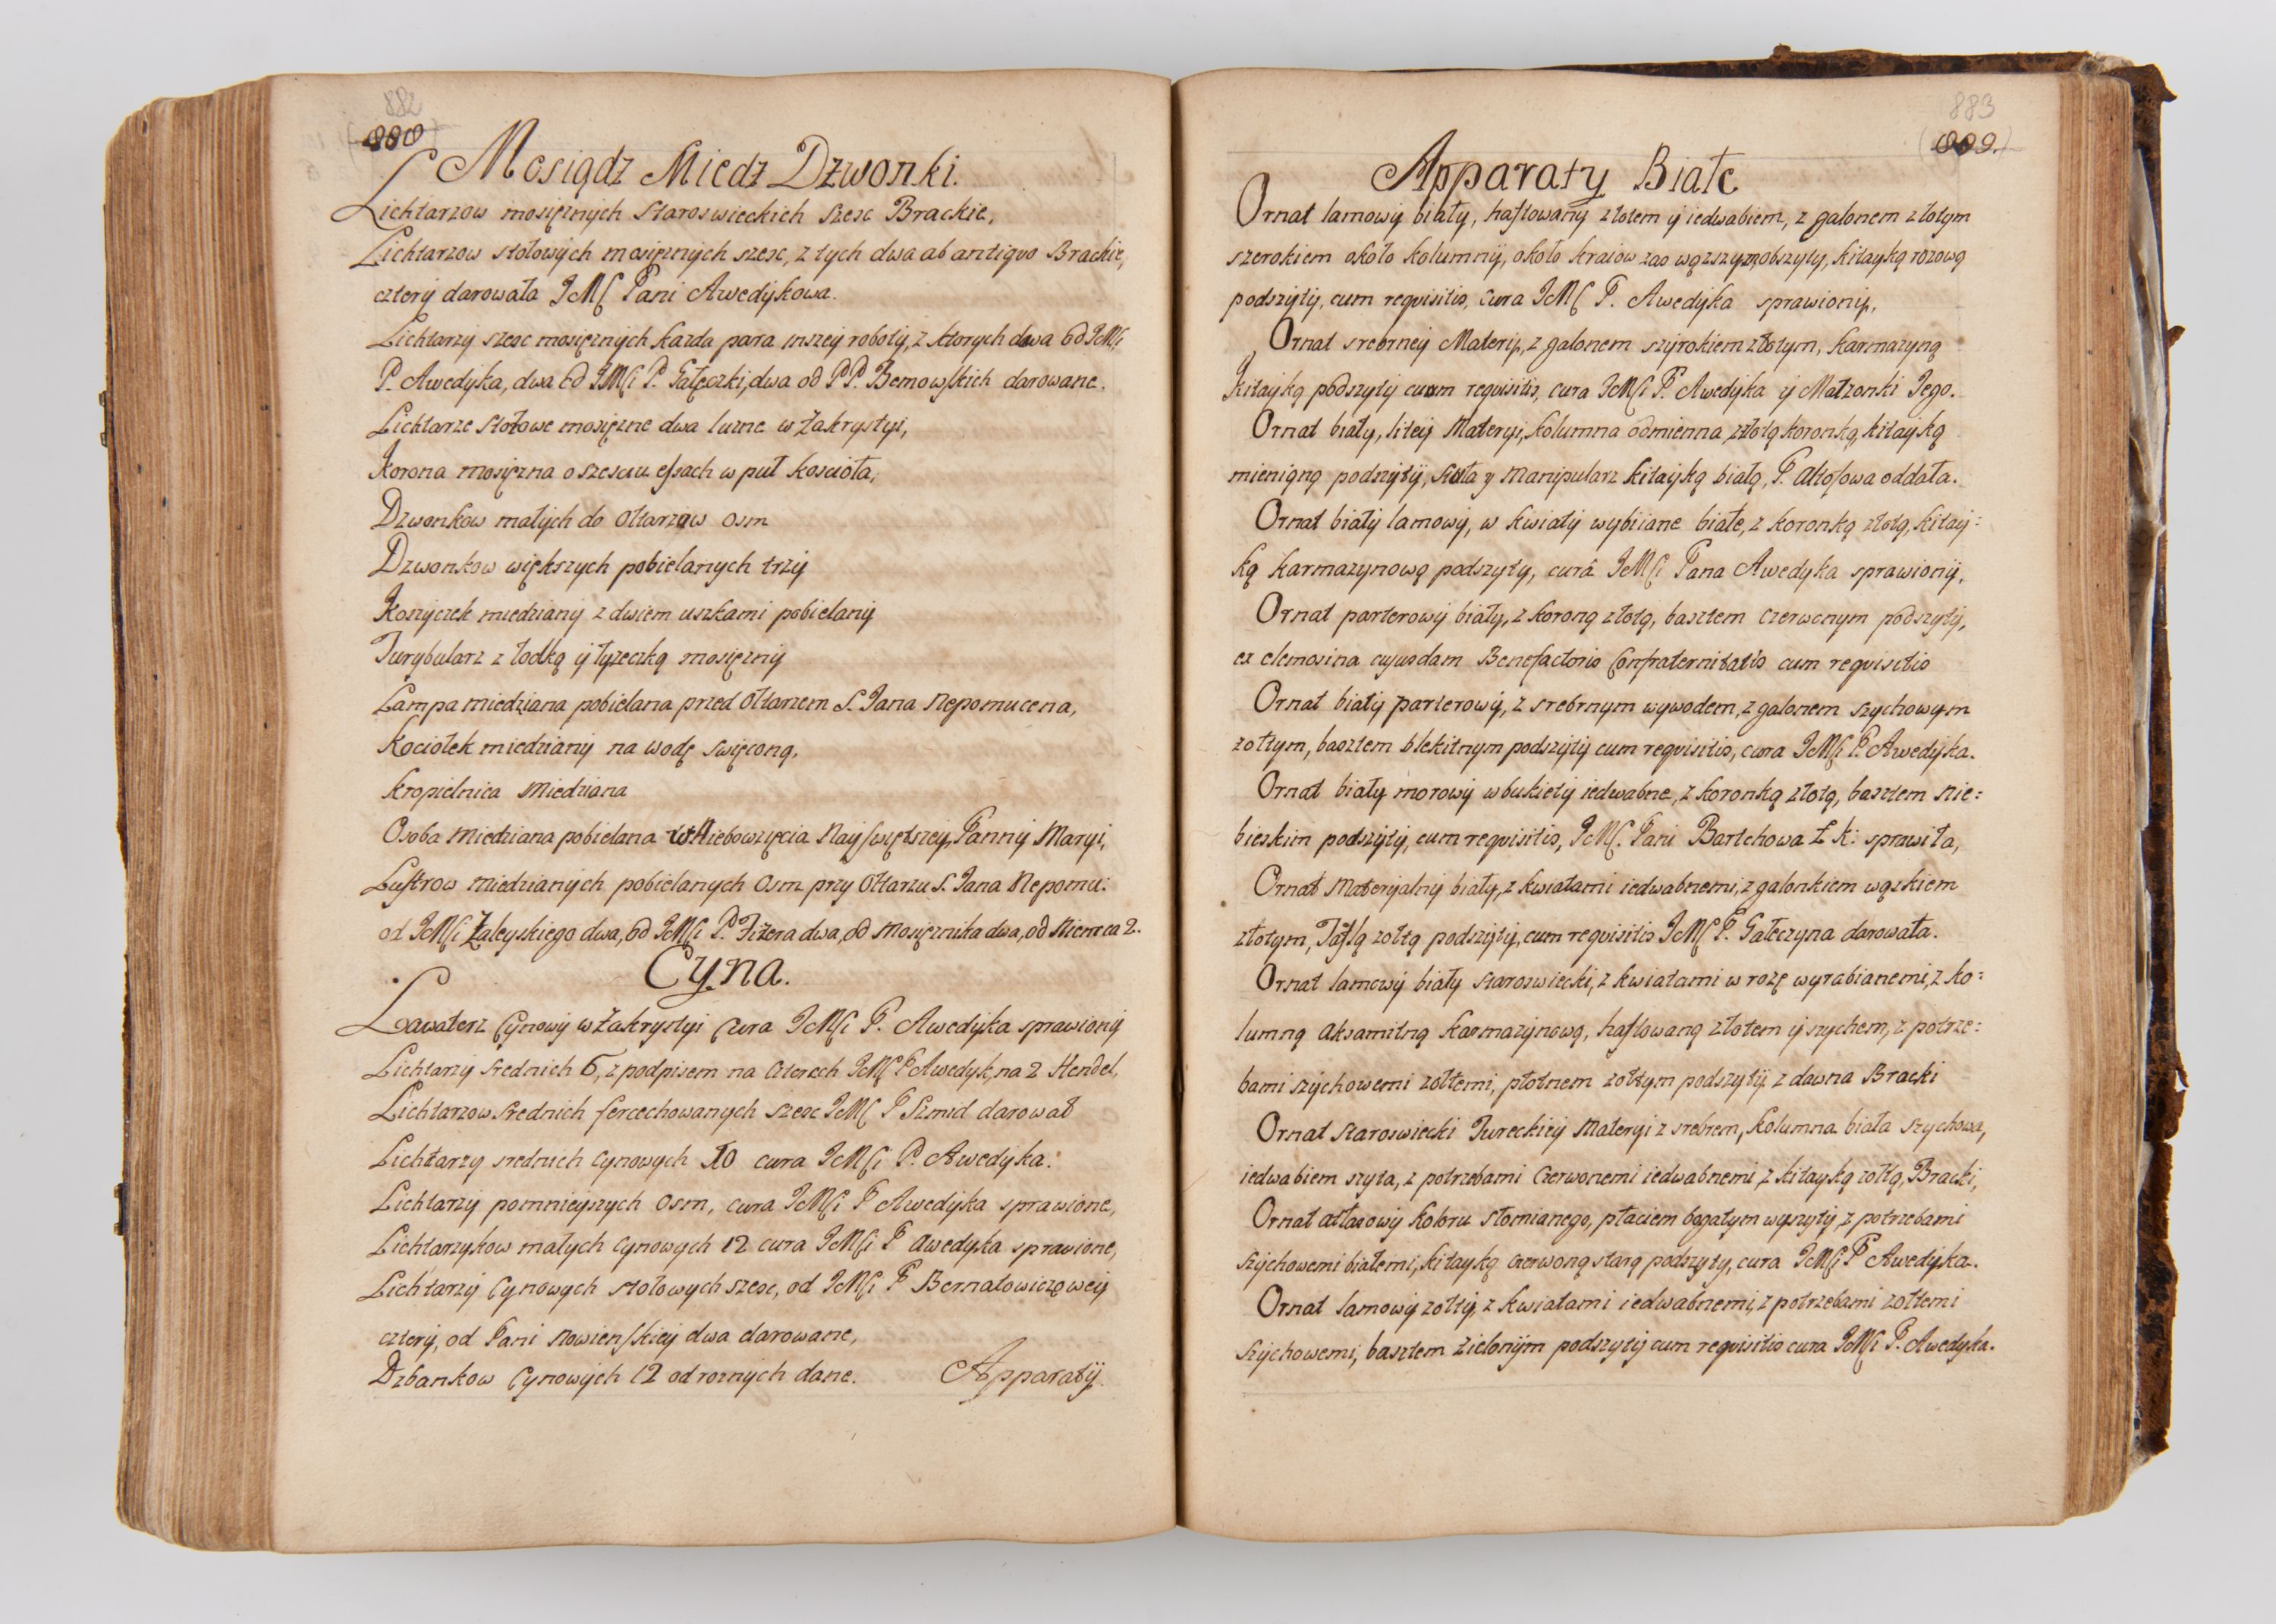 882
888
Mosiądz Miedz Dzwonki.
Lichtarzow mosięznych staroswieckich szesc Brackie,
Lichtarzow stołowych mosięznych szesc, z tych dwa ab antiquo Brackie,
cztery darowała JMC Pani Awedykowa.
Lichtarzy szesc mosięznych kazda para inszey roboty, z ktorych dwa od JeMCi
P. Awedyka, dwa od JMCi P. Gałeczki, dwa od PP. Bemowskich darowane.
Lichtarze stołowe mosięzne dwa luzne w Zakrystyi,
Korona mosięzna o szesciu essach w puł kościoła,
Dzwonkow małych do Ołtarzow osm
Dzwonkow większych pobielanych trzy
Koszyczek miedziany z dwiem uszkami pobielany
Turybularz z łodką y łyzeczką mosięzny
Lampa miedziana pobielana przed Ołtarzem S. Jana Nepomucena,
Kociołek miedziany na wodę swięconą,
Kropielnica Miedziana
Osoba Miedziana pobielana Wniebowzięcia Nayswiętszey Panny Maryi,
Lustrow miedzianych pobielanych Osm przy Ołtarzu S. Jana Nepomu:
od JeMCi Zaleyskiego dwa, od JeMCi P. Fizera dwa, od Mosięznika dwa, od Niemca 2.
Cyna.
Lawaterz Cynowy w Zakrystyi Cura JeMCi P. Awedyka sprawiony
Lichtarzy srednich 6, z podpisem na czterech JeMC P Awedyk, na 2 Hendel,
Lichtarzow srednich fercechowanych szesc JeMC P Szmid darował
Lichtarzy srednich cynowych 10 cura JeMCi P. Awedyka.
Lichtarzy pomnieyszych Osm, cura JeMCi P Awedyka sprawione,
Lichtarzykow małych cynowych 12 cura JeMCi P Awedyka sprawione,
Lichtarzy Cynowych stołowych szesc, od JeMCi P Bernatowiczowey
cztery, od Pani Nowienskiey dwa darowane,
Dzbankow Cynowych 12 od roznych dane. Apparaty
883
889.
Apparaty Białe
Ornat lamowy biały, haftowany złotem y iedwabiem, z galonem złotym
szerokiem około kolumny, około kraiow zas wązszym obszyty, kitayką rozową
podszyty, cum requisitis, cura JeMC P. Awedyka sprawiony,
Ornat srebrney Materiy, z galonem szyrokiem złotym, karmazyną
Kitayką podszyty cum requisitis, cura JeMCi P. Awedyka y Małzonki Jego.
Ornat biały, litey Materyi, kolumna odmienna złotą koronką, kitayką
mieniąną podszyty, stuła y manipularz kitayką białą, P. Altosowa oddała.
Ornat biały lamowy, w kwiaty wybiiane białe, z koronką złotą, kitay=
ką karmazynową podszyty, curâ JeMCi Pana Awedyka sprawiony,
Ornat parterowy biały, z koroną złotą, basztem czerwonym podszyty,
ex elemosina cujusdam Benefactoris Confraternitatis cum requisitis
Ornat biały parterowy, z srebrnym wywodem, z galonem szychowym
zołtym, basztem blekitnym podszyty cum requisitis, cura JeMCi P. Awedyka.
Ornat biały morowy w bukiety iedwabne, z koronką złotą, basztem nie=
bieskim podszyty, cum requisitis, JeMC. Pani Bartchowa Ł K: sprawiła,
Ornat Materyalny biały, z kwiatami iedwabnemi, z galonkiem wązkiem
złotym, Taftą zołtą podszyty, cum requisitis JeMC P. Gałeczyna darowała.
Ornat lamowy biały staroswiecki, z kwiatami w rozę wyrabianemi, z ko=
lumną aksamitną karmazynową, haftowaną złotem y szychem, z potrze=
bami szychowemi zołtemi, płotnem zołtym podszyty z dawna Bracki
Ornat staroswiecki Tureckiey Materyi z srebrem, kolumna biała szychowa,
iedwabiem szyta, z potrzebami czerwonemi iedwabnemi, z kitayką zołtą, Bracki,
Ornat atłasowy koloru słomianego, ptaciem bogatym wyszyty, z potrzebami
szychowemi białemi, kitayką czerwoną starą podszyty, cura JeMCi P Awedyka.
Ornat lamowy zołty, z kwiatami iedwabnemi, z potrzebami zołtemi
szychowemi, basztem zielonym podszyty cum requisitis cura JeMCi P. Awedyka.